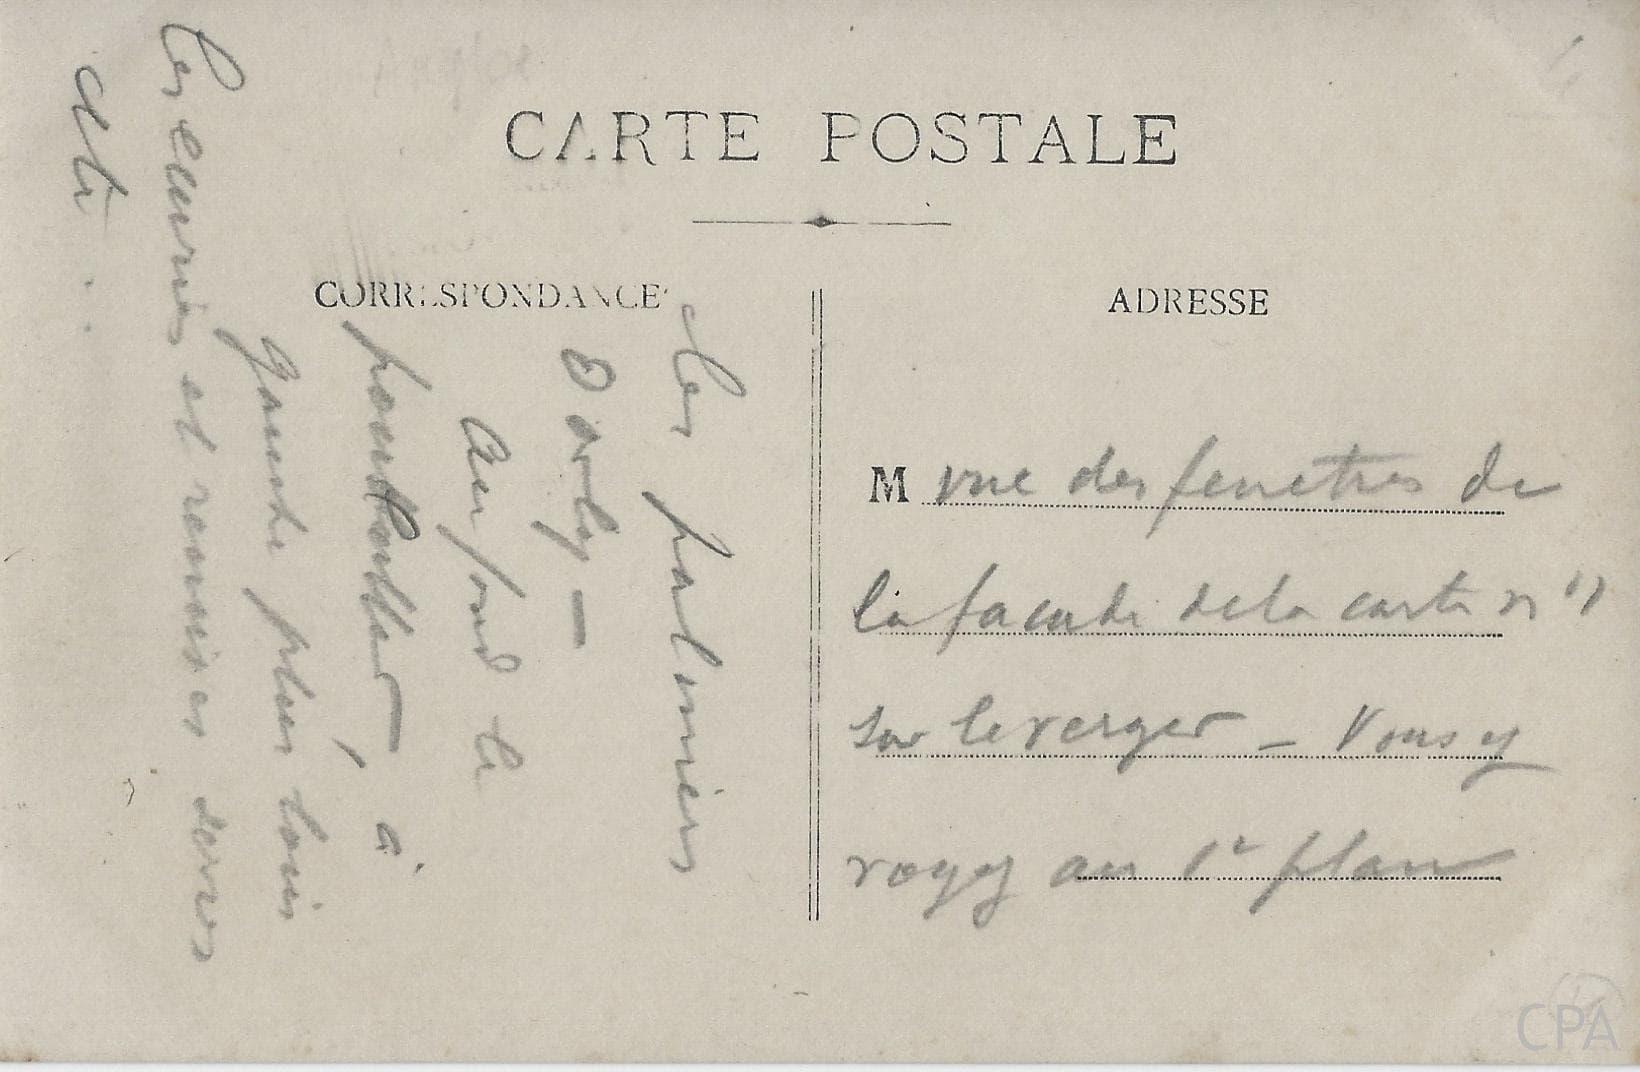 CARTE POSTALE
CORRESPONDANCE
ADRESSE
M vue des fenetres de
la facade de la carte n° 1
sur le verger – Vous y
voyez au 1r plan
les palmiers
Au fond le
à
gauche plus loin
les ecuries et remises
CPA